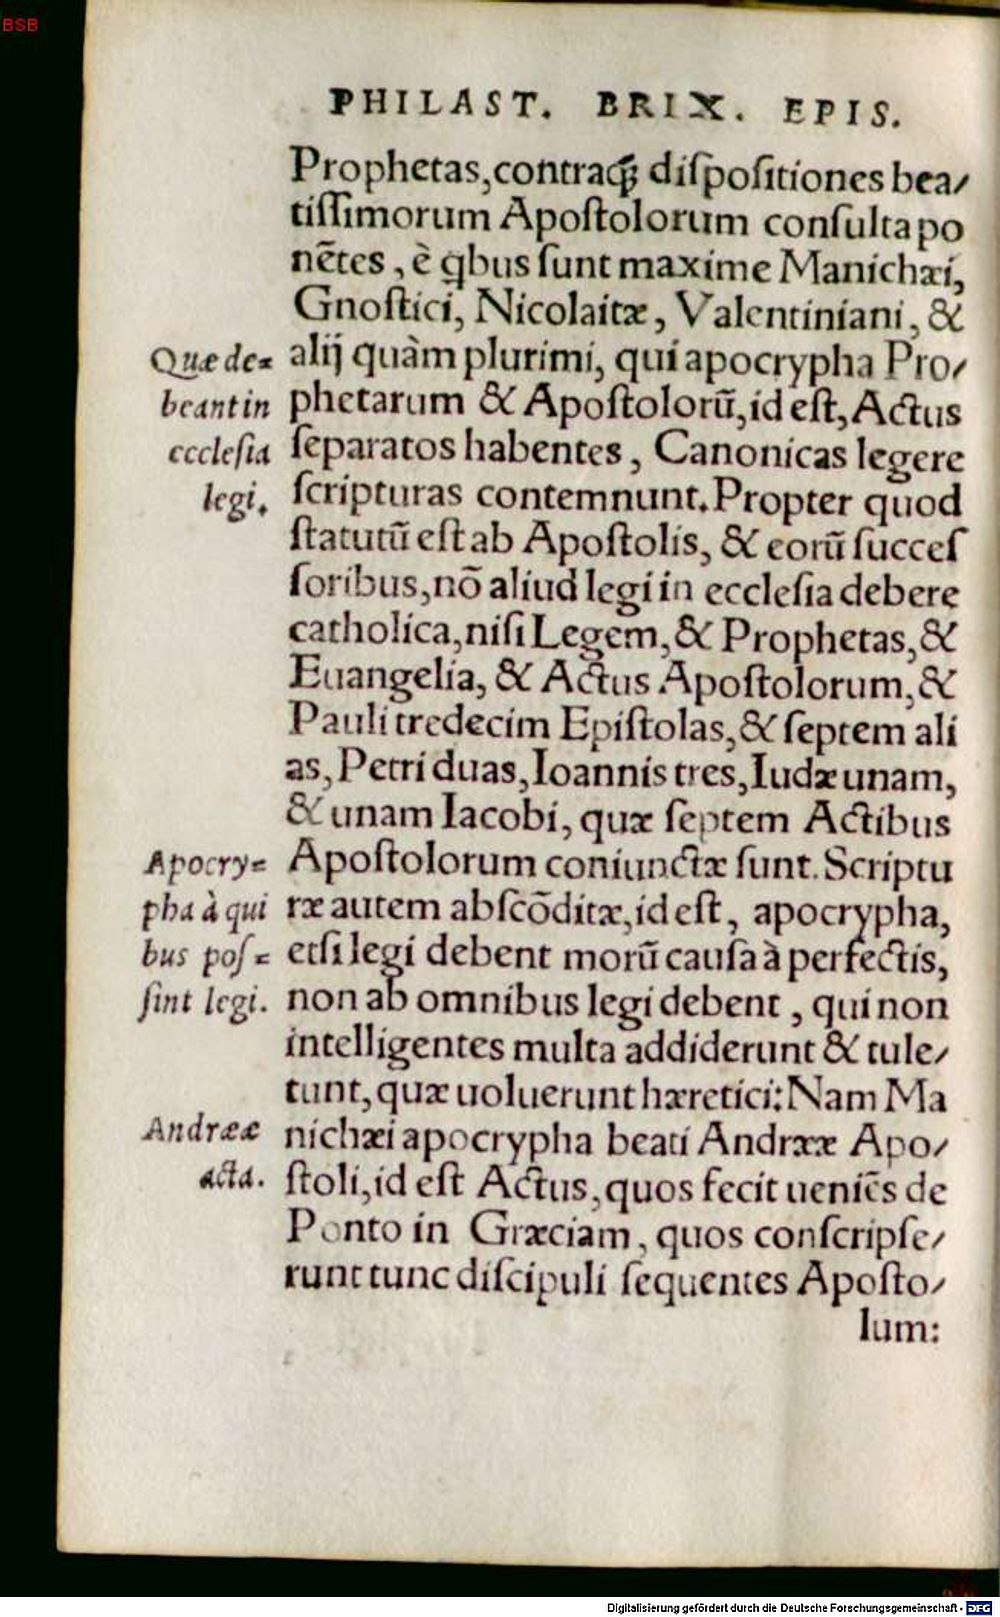 BSB
PHILAST. BRIX. EPIS.
Prophetas,contraq́ꝫ diſpoſitiones bea/
tiſſimorum Apoſtolorum conſulta po
nẽtes, è ꝗbus ſunt maxime Manichæi,
Gnoſtici, Nicolaitæ, Valentiniani, &
Quæ de=
alij quàm plurimi, qui apocrypha Pro/
beant in
phetarum & Apoſtolorũ,id eſt,Actus
eccleſia
ſeparatos habentes, Canonicas legere
legi.
ſcripturas contemnunt.Propter quod
ſtatutũ eſt ab Apoſtolis, & eorũ ſucceſ
ſoribus,nõ aliud legi in eccleſia debere
catholica,niſi Legem,& Prophetas,&
Euangelia, & Actus Apoſtolorum,&
Pauli tredecim Epiſtolas,& ſeptem ali
as,Petri duas,Ioannis tres,Iudæ unam,
& unam Iacobi, quæ ſeptem Actibus
Apocry=
Apoſtolorum coniunctæ ſunt.Scriptu
pha à qui
ræ autem abſcõditæ,id eſt, apocrypha,
bus poſ=
etſi legi debent morũ cauſa à perfectis,
ſint legi.
non ab omnibus legi debent, qui non
intelligentes multa addiderunt & tule/
runt,quæ uoluerunt hæretici:Nam Ma
Andreæ
nichæi apocrypha beati Andrææ Apo/
acta.
ſtoli,id eſt Actus,quos fecit ueniẽs de
Ponto in Græciam, quos conſcripſe/
runt tunc diſcipuli ſequentes Apoſto/
lum:
Digitalisierung gefördert durch die Deutsche Forschungsgemeinschaft - DFG